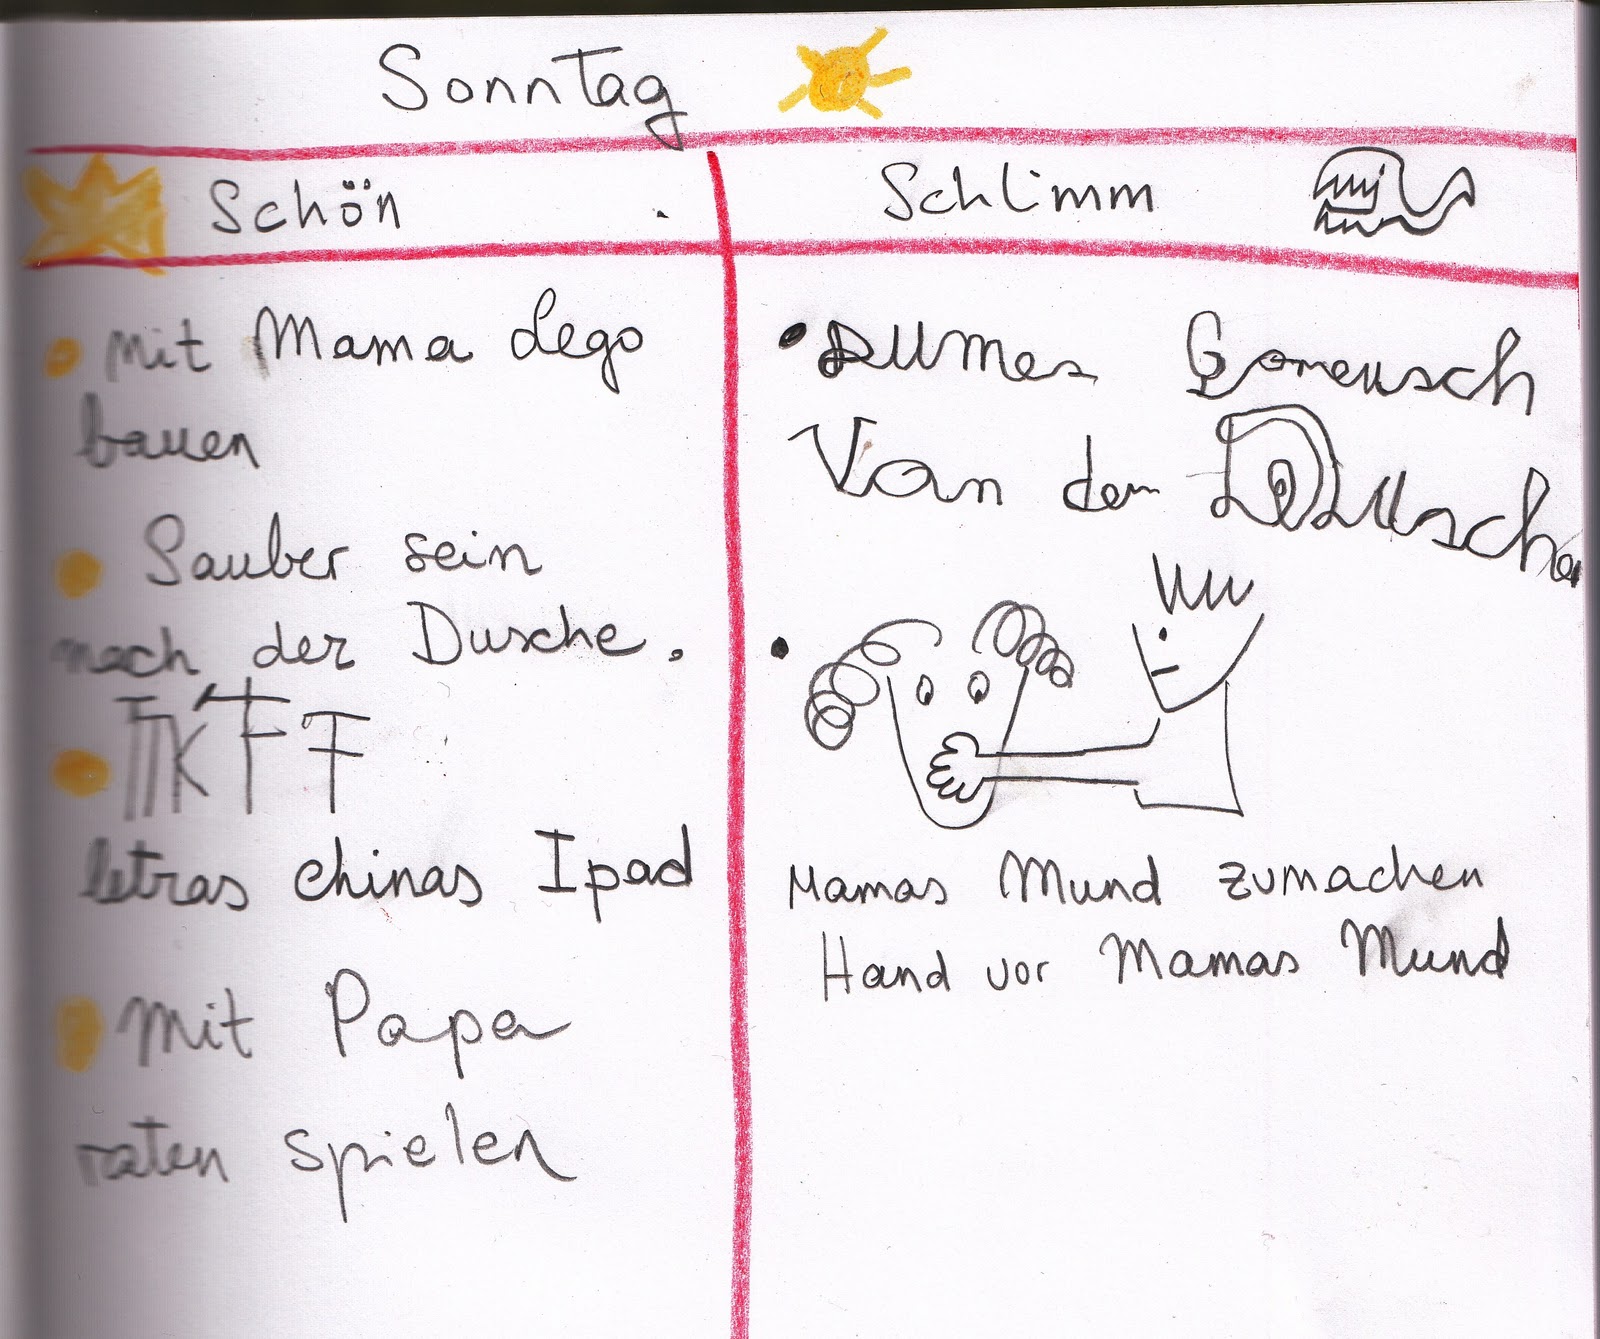 Sonntag
Schön
Schlimm
mit Mama Lego
bauen
Sauber sein
nach der Dusche.
letras chinas Ipad
mit Papa
raten spielen
DUMes Gereusch
Von der Dusche
Mamas Mund zumachen
Hand vor Mamas Mund